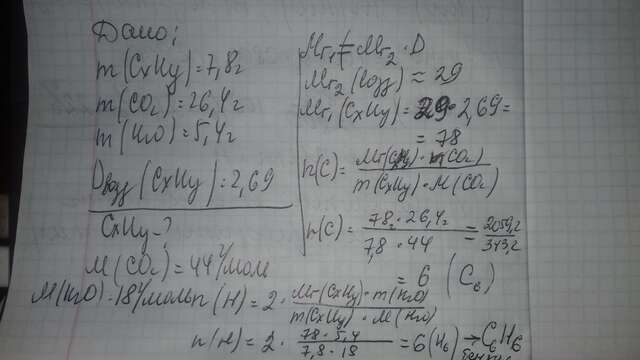 Дано:
m(CxHy)=7,8г
m(CO₂)=26,4г
m(H₂O)=5,4г
Dвозд(CxHy)=2,69
CxHy-?
M(CO₂)=44г/моль
M(H₂O)=18г/моль
Mr₁=Mr₂·D
Mr₂(возд)≈29
Mr₁(CxHy)=29·2,69=
=78
n(C)=Mr(CxHy)·m(CO₂)/m(CxHy)·M(CO₂)
n(C)=78·26,4/7,8·44=2059,2/343,2
=6 (C₆)
n(H)=2·Mr(CxHy)·m(H₂O)/m(CxHy)·M(H₂O)
n(H)=2·78·5,4/7,8·18=6(H₆)→C₆H₆
бензол